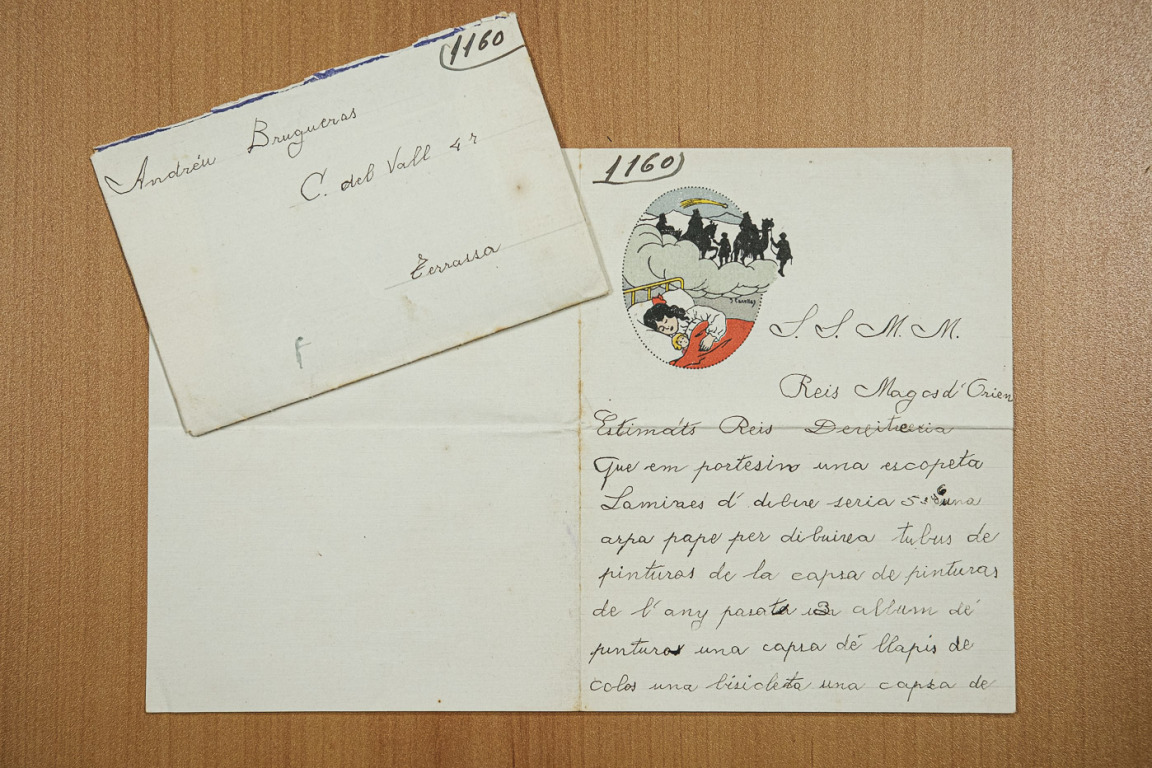 1160
Andréu Brugueras
C. del Vall 47
Terrassa
F
1160
S. S. M. M.
Reis Magos d' Orien
Estimats Reis
Que em portesin una escopeta
Lamines d' dibuxe seria 5 una
arpa pape per dibuixa tubus de
pinturas de la capsa de pinturas
de l' any pasat un album dé
pinturas una capsa dé llapis de
colos una bisicleta una capsa de